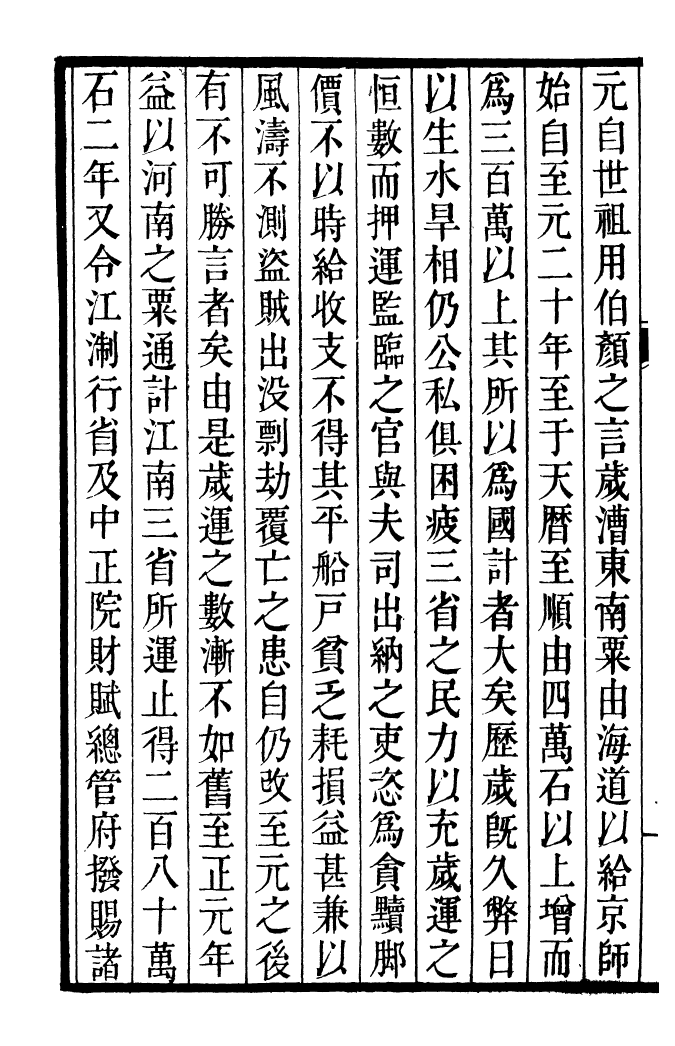 元自世祖用伯顏之言歲漕東南粟由海道以給京師
始自至元二十年至于天曆至順由四萬石以上增而
爲三百萬以上其所以爲國計者大矣歷歲旣久弊日
以生水旱相仍公私俱困疲三省之民力以充歲運之
恒數而押運監臨之官與夫司出納之吏恣爲貪黷脚
價不以時給收支不得其平船戸貧乏耗損益甚兼以
風濤不測盜賊出没剽劫覆亡之患自仍改至元之後
有不可勝言者矣由是歲運之數漸不如舊至正元年
益以河南之粟通計江南三省所運止得二百八十萬
石二年又令江淛行省及中正院財賦總管府撥賜諸